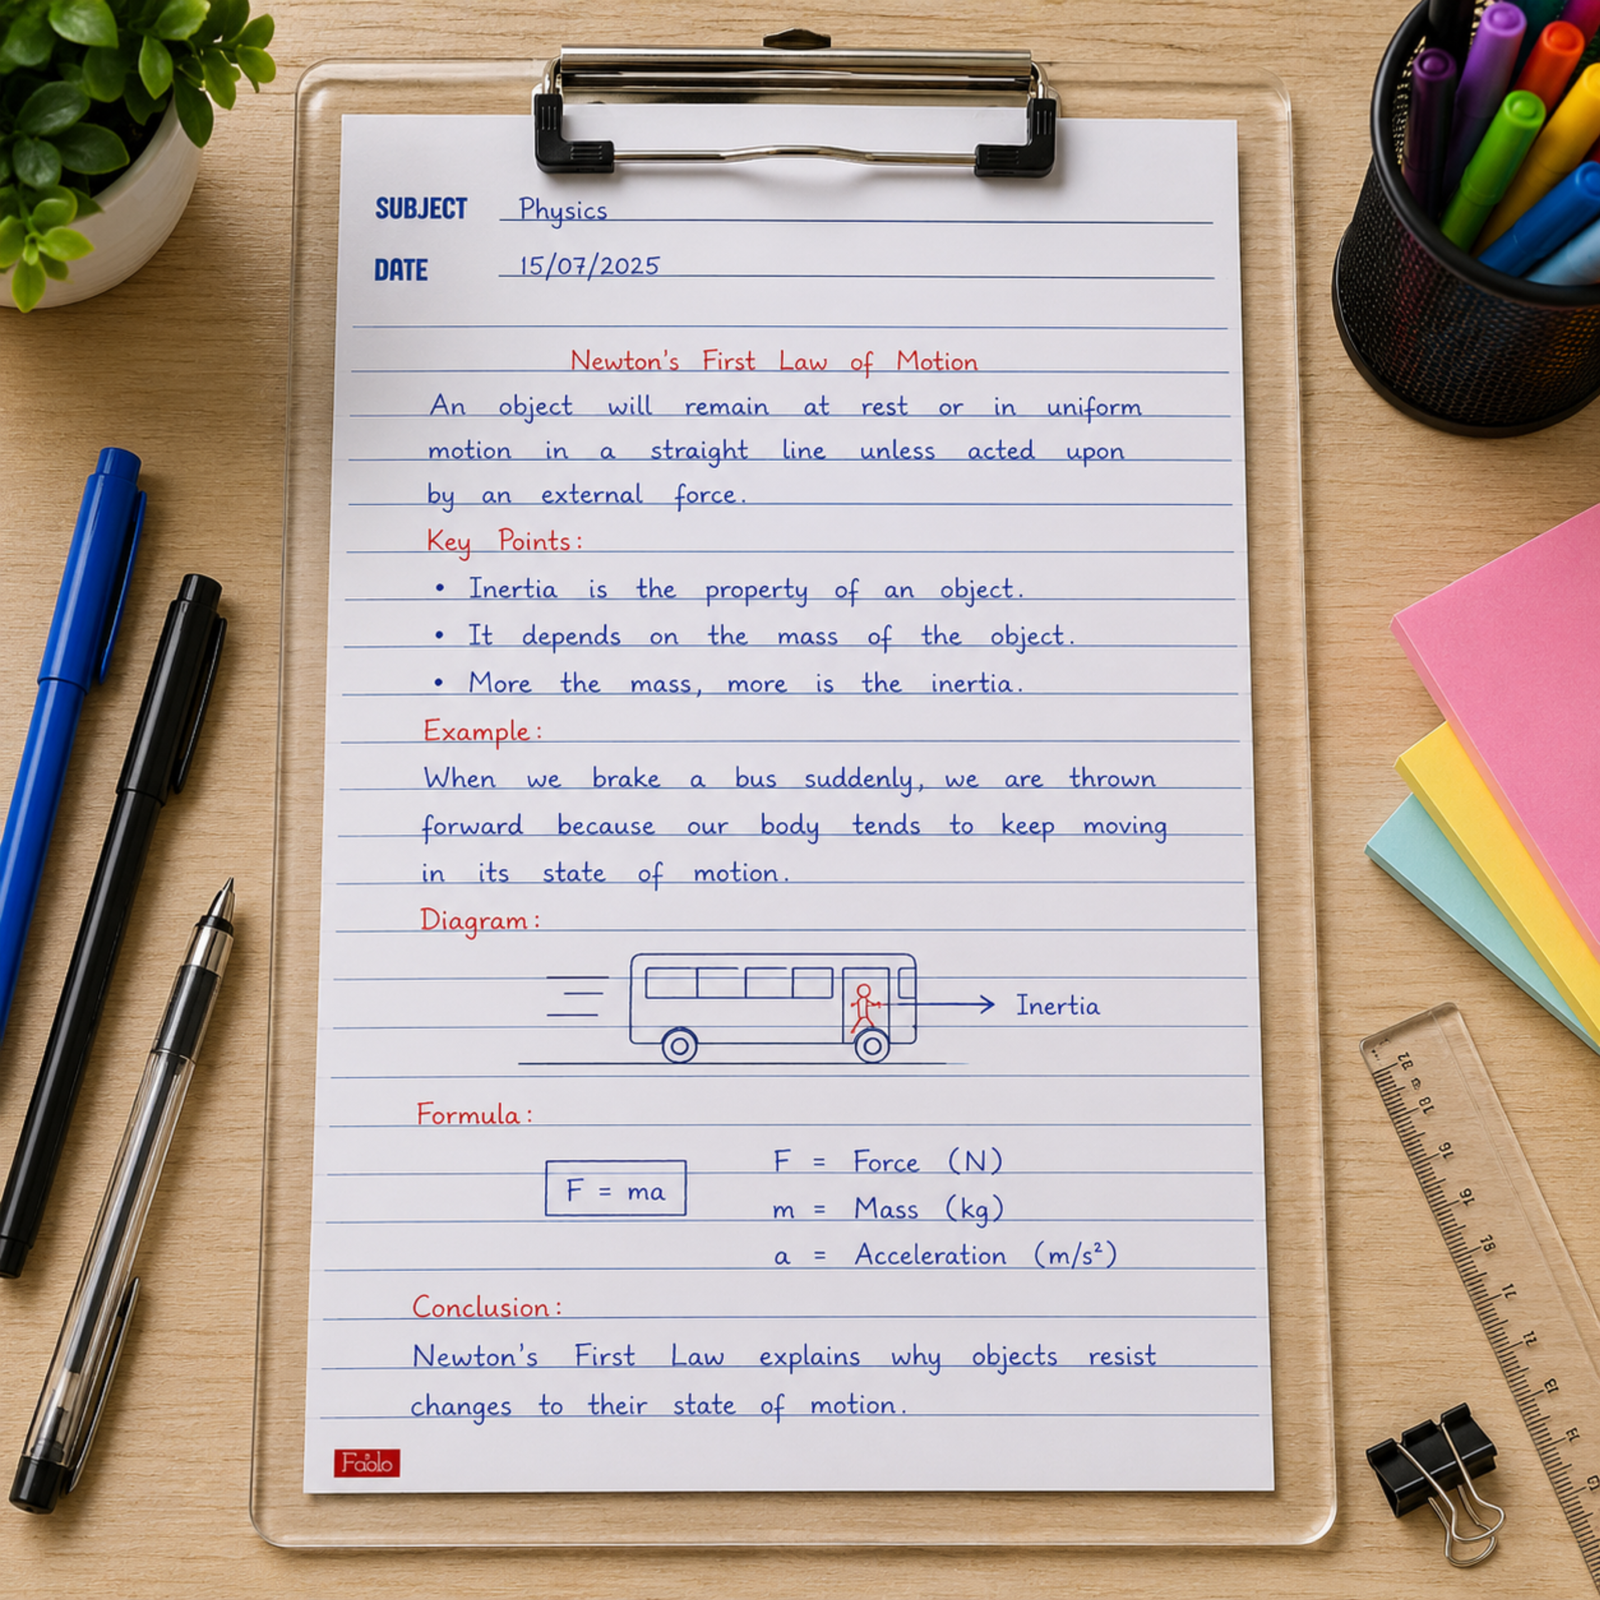 SUBJECT Physics
DATE 15/07/2025
Newton's First Law of Motion
An object will remain at rest or in uniform
motion in a straight line unless acted upon
by an external force.
Key Points:
• Inertia is the property of an object.
• It depends on the mass of the object.
• More the mass, more is the inertia.
Example:
When we brake a bus suddenly, we are thrown
forward because our body tends to keep moving
in its state of motion.
Diagram:
Inertia
Formula:
F = ma
F = Force (N)
m = Mass (kg)
a = Acceleration (m/s²)
Conclusion:
Newton's First Law explains why objects resist
changes to their state of motion.